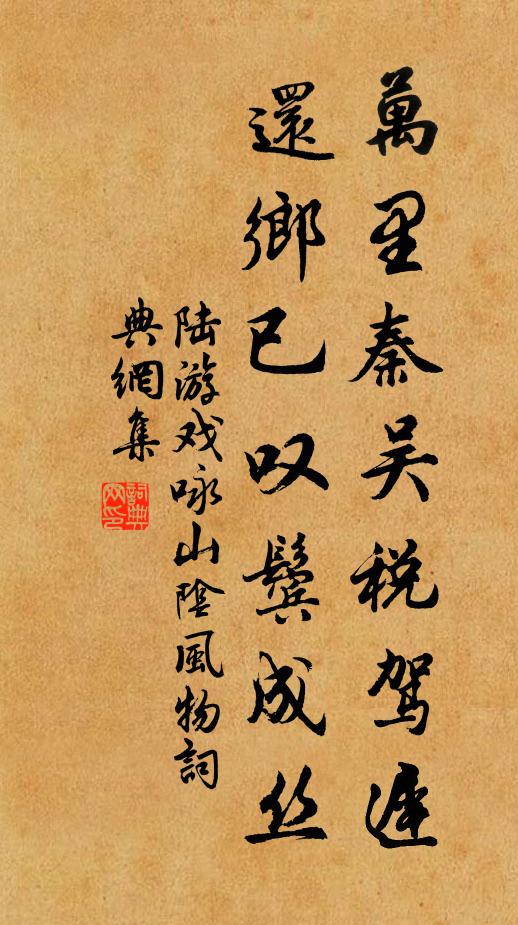 萬里秦吴税驾遲
還鄉已叹鬓成丝
陆游戏咏山陰風物詞
典網集
詞典
网印